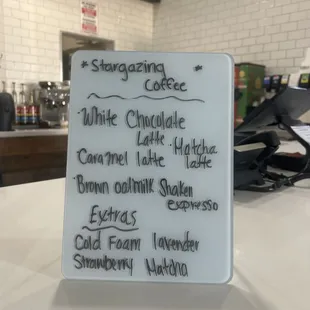 * Stargazing *
Coffee
· White Chocolate
Latte
· Matcha
latte
Caramel latte
· Brown oatmilk Shaken
espresso
Extras
Cold Foam lavender
Strawberry Matcha